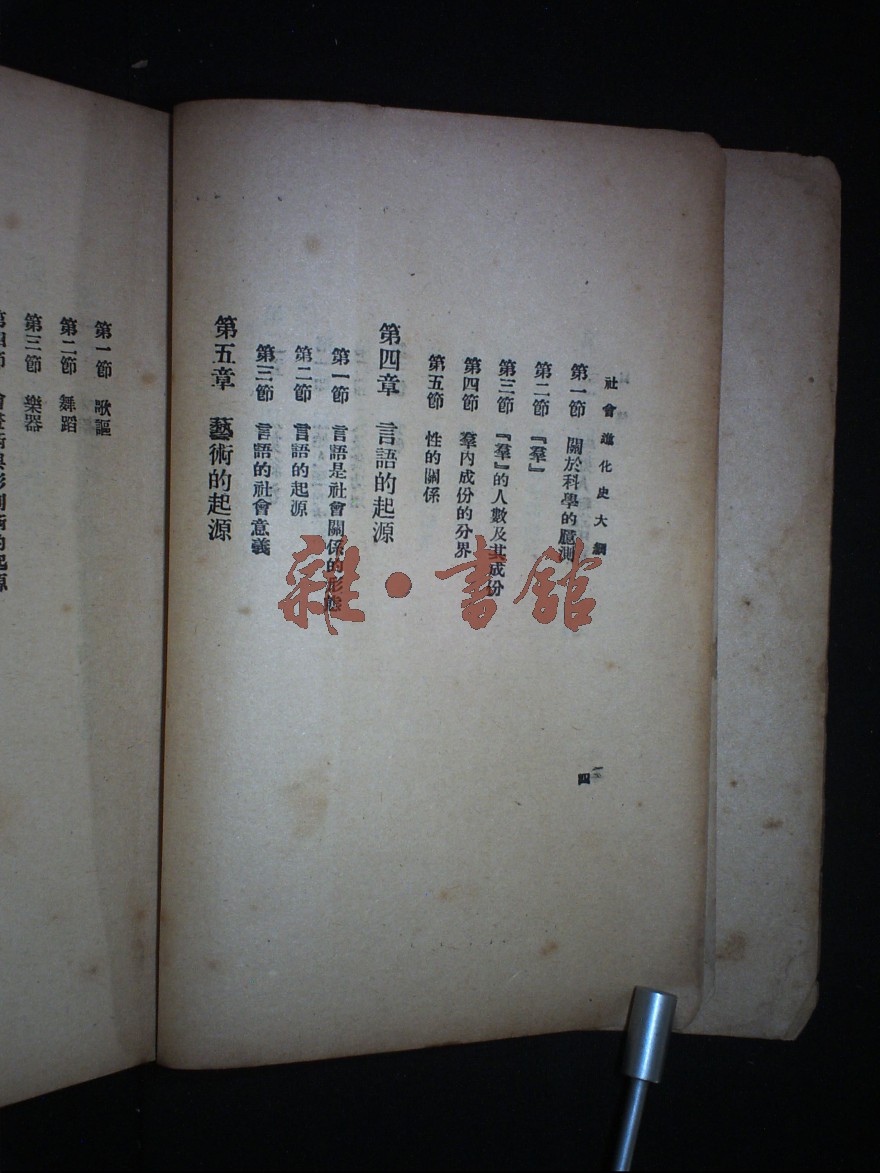 社會進化史大綱
第一節 關於科學的臆測
第二節 『羣』
第三節 『羣』的人數及其成份
第四節 羣內成份的分界
第五節 性的關係
第四章 言語的起源
第一節 言語是社會關係的形態
第二節 言語的起源
第三節 言語的社會意義
第五章 藝術的起源
四
第一節 歌謳
第二節 舞蹈
第三節 樂器
雜·書館